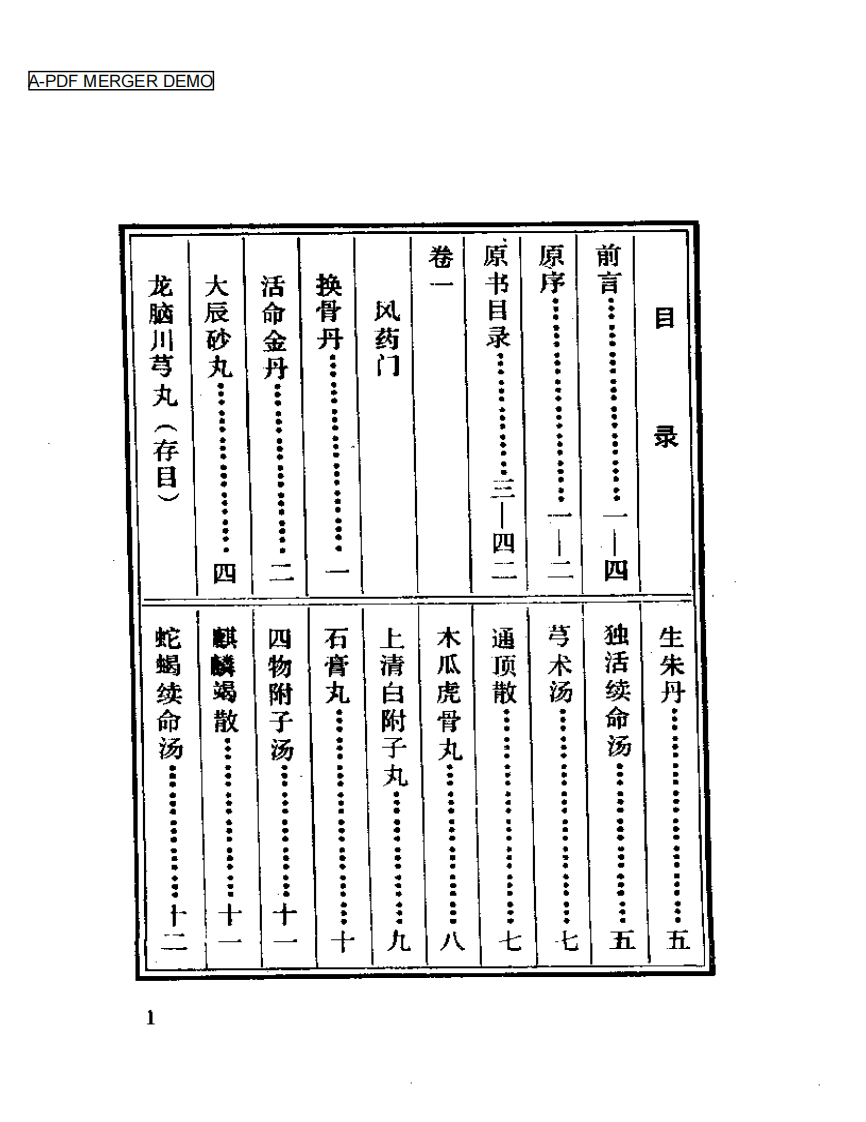 A-PDF MERGER DEMO
目录
前言……………………一—四
原序……………………一—二
原书目录……………三—四二
卷一
风药门
换骨丹……………………一
活命金丹…………………二
大辰砂丸…………………四
龙脑川芎丸（存目）
生朱丹……………………五
独活续命汤………………五
芎术汤……………………七
通顶散……………………七
木瓜虎骨丸………………八
上清白附子丸……………九
石膏丸……………………十
四物附子汤……………十一
麒麟竭散………………十一
蛇蝎续命汤……………十二
1